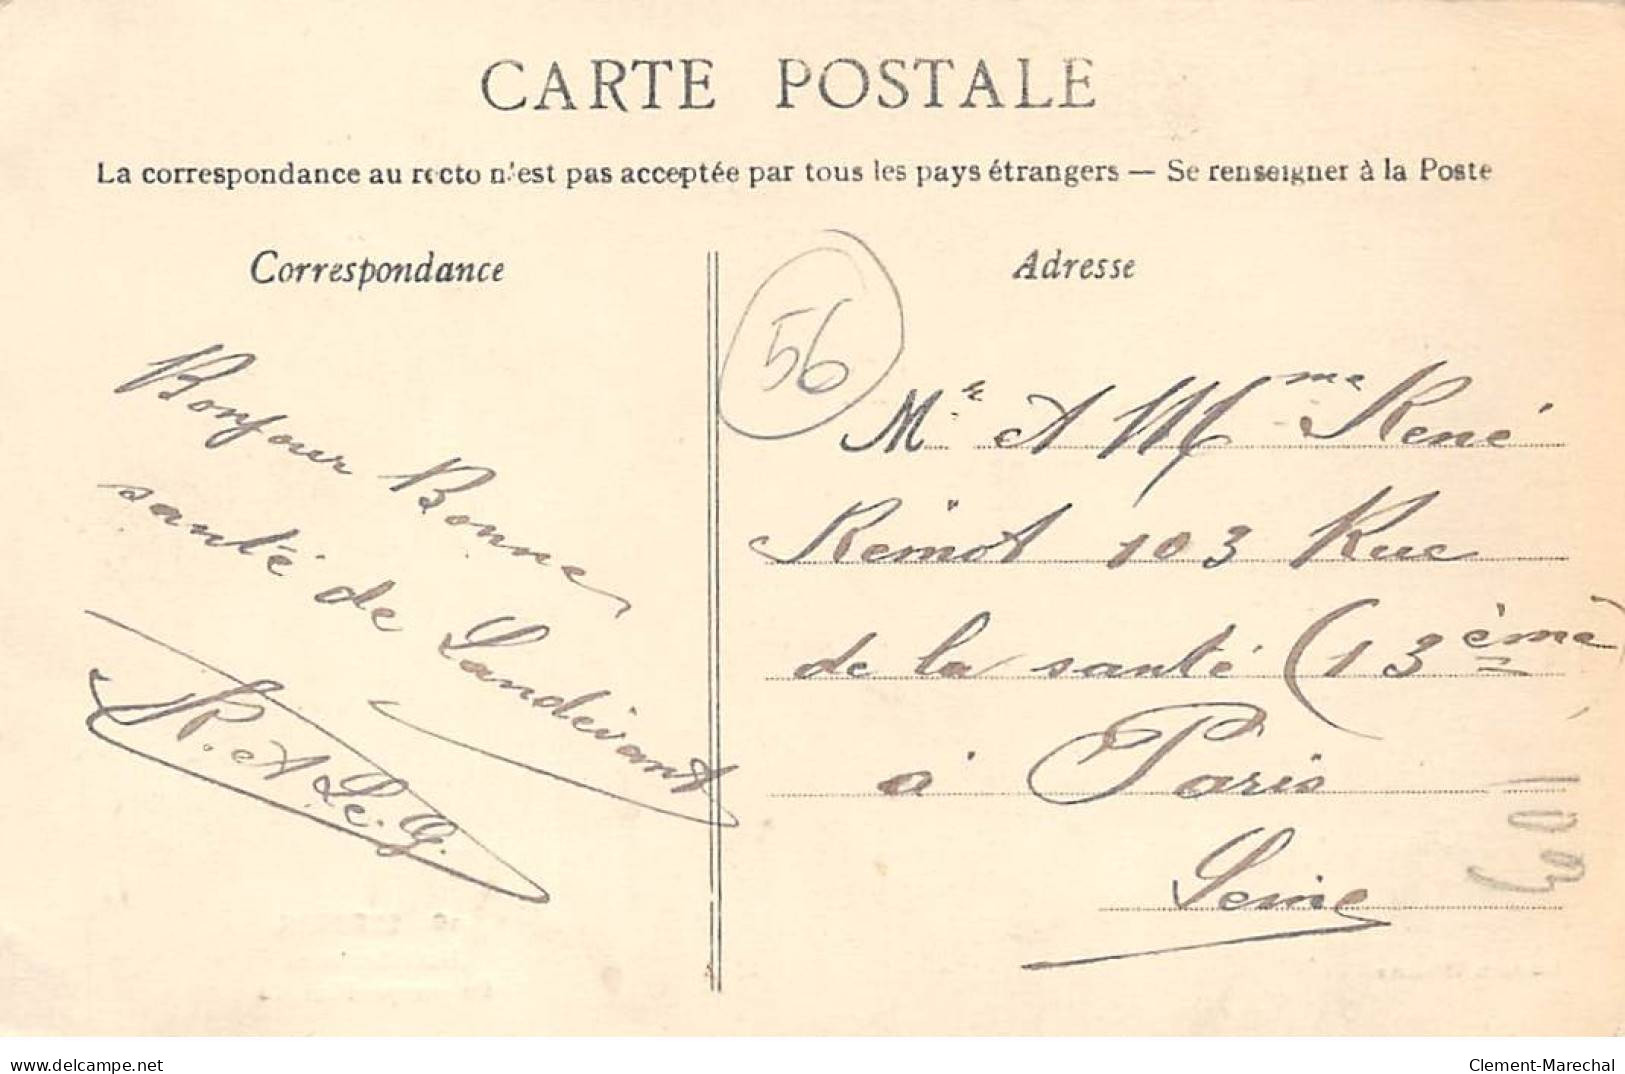 CARTE POSTALE
La correspondance au recto n'est pas acceptée par tous les pays étrangers — Se renseigner à la Poste
Correspondance
Bonjour Bonne
santé de Landévant
R. et Le. G.
Adresse
56
Mr et Mme René
Rémot 103 Rue
de la santé (13ème)
à Paris
Seine
www.delcampe.net
Clement-Marechal